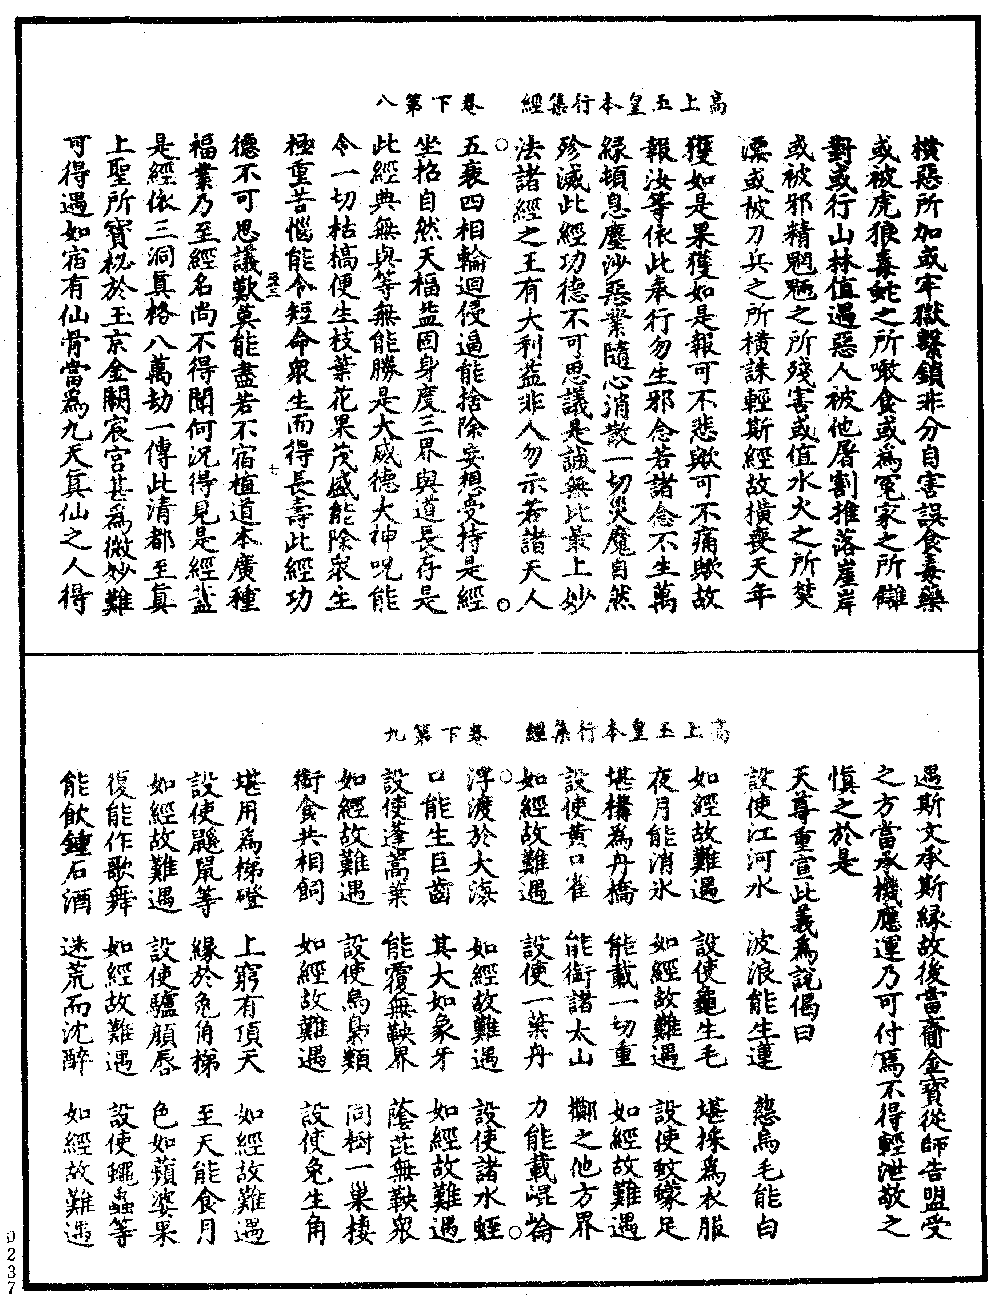 高上玉皇本行集經　卷下第八
橫惡所加或牢獄繫鎖非分自害誤食毒藥
或被虎狼毒蛇之所噉食或為冤家之所讎
對或行山林值遇惡人被他屠割推落崖岸
或被邪精魍魎之所殘害或值水火之所焚
漂或被刀兵之所橫誅輕斯經故橫喪天年
獲如是果獲如是報可不悲歟可不痛歟故
報汝等依此奉行勿生邪念若諸念不生萬
緣頓息塵沙惡業隨心消散一切災魔自然
殄滅此經功德不可思議是誠無比最上妙
法諸經之王有大利益非人勿示若諸天人
五衰四相輪迴侵逼能捨除妄想受持是經
坐招自然天福益固身度三界與道長存是
此經典無與等無能勝是大威德大神呪能
令一切枯槁便生枝葉花果茂盛能除眾生
極重苦惱能令短命眾生而得長壽此經功
德不可思議歎莫能盡若不宿植道本廣種
福業乃至經名尚不得聞何況得見是經蓋
是經依三洞真格八萬劫一傳此清都至真
上聖所寶秘於玉京金闕宸宮甚為微妙難
可得遇如宿有仙骨當為九天真仙之人得
高上玉皇本行集經　卷下第九
遇斯文承斯緣故後當齎金寶從師告盟受
之方當承機應運乃可付焉不得輕泄敬之
慎之於是
天尊重宣此義為說偈曰
設使江河水　波浪能生蓮　慈烏毛能白
如經故難遇　設使龜生毛　堪採為衣服
夜月能消氷　如經故難遇　設使蚊蠓足
堪構為丹橋　能載一切重　如經故難遇
設使黃口雀　能銜諸太山　擲之他方界
如經故難遇　設使一葉丹　力能載崐崘
浮渡於大海　如經故難遇　設使諸水蛭
口能生巨齒　其大如象牙　如經故難遇
設使蓬蒿葉　能覆無鞅界　蔭芘無鞅眾
如經故難遇　設使烏梟類　同樹一巢棲
銜食共相飼　如經故難遇　設使兔生角
堪用為梯磴　上窮有頂天　如經故難遇
設使鼷鼠等　緣於兔角梯　至天能食月
如經故難遇　設使驢顏唇　色如蘋婆果
復能作歌舞　如經故難遇　設使蠅蟲等
能飲鍾石酒　迷荒而沈醉　如經故難遇